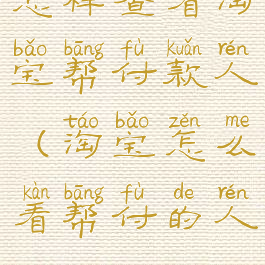 怎样查看淘
bǎo bāng fù kuǎn rén
宝帮付款人
táo bǎo zěn me
（淘宝怎么
kàn bāng fù de rén
看帮付的人